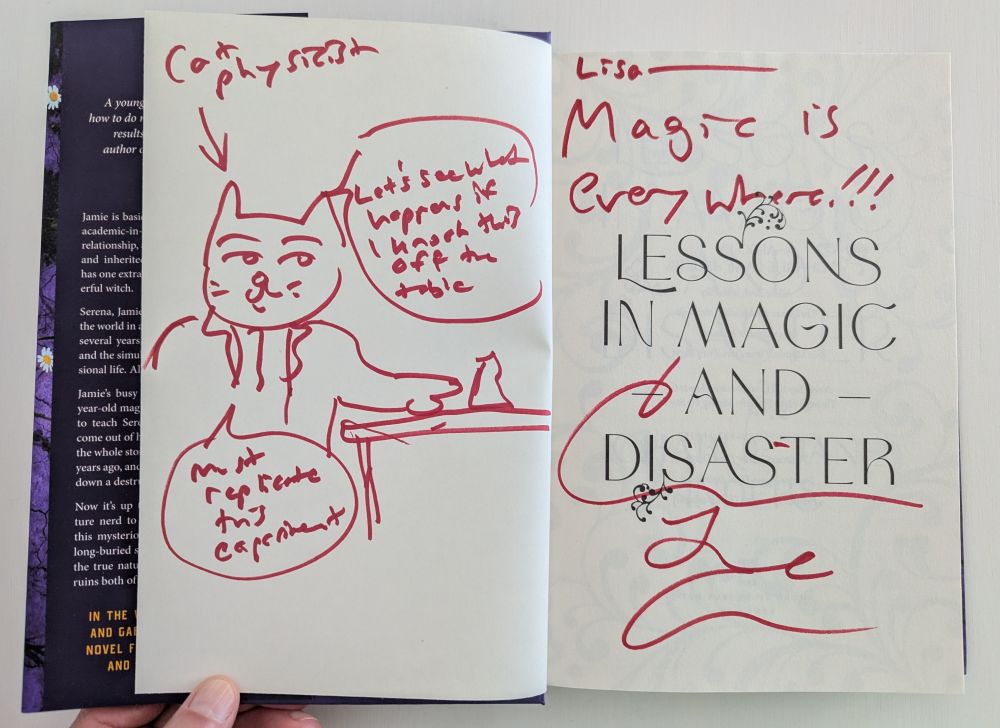 A young
how to do m
results
author o
Jamie is basi
academic-in-
relationship,
and inherited
has one extra
erful witch.
Serena, Jamie
the world in a
several years
and the simu
sional life. Al
Jamie's busy
year-old mag
to teach Sere
come out of h
the whole sto
years ago, and
down a destr
Now it's up t
ture nerd to
this mysterio
long-buried s
the true natu
ruins both of
IN THE W
AND GAI
NOVEL F
AND
Cat
physicist
Let's see what
happens if
I knock this
off the
table
Must
replicate
this
experiment
Lisa—
Magic is
everywhere!!!
LESSONS
IN MAGIC
– AND –
DISASTER